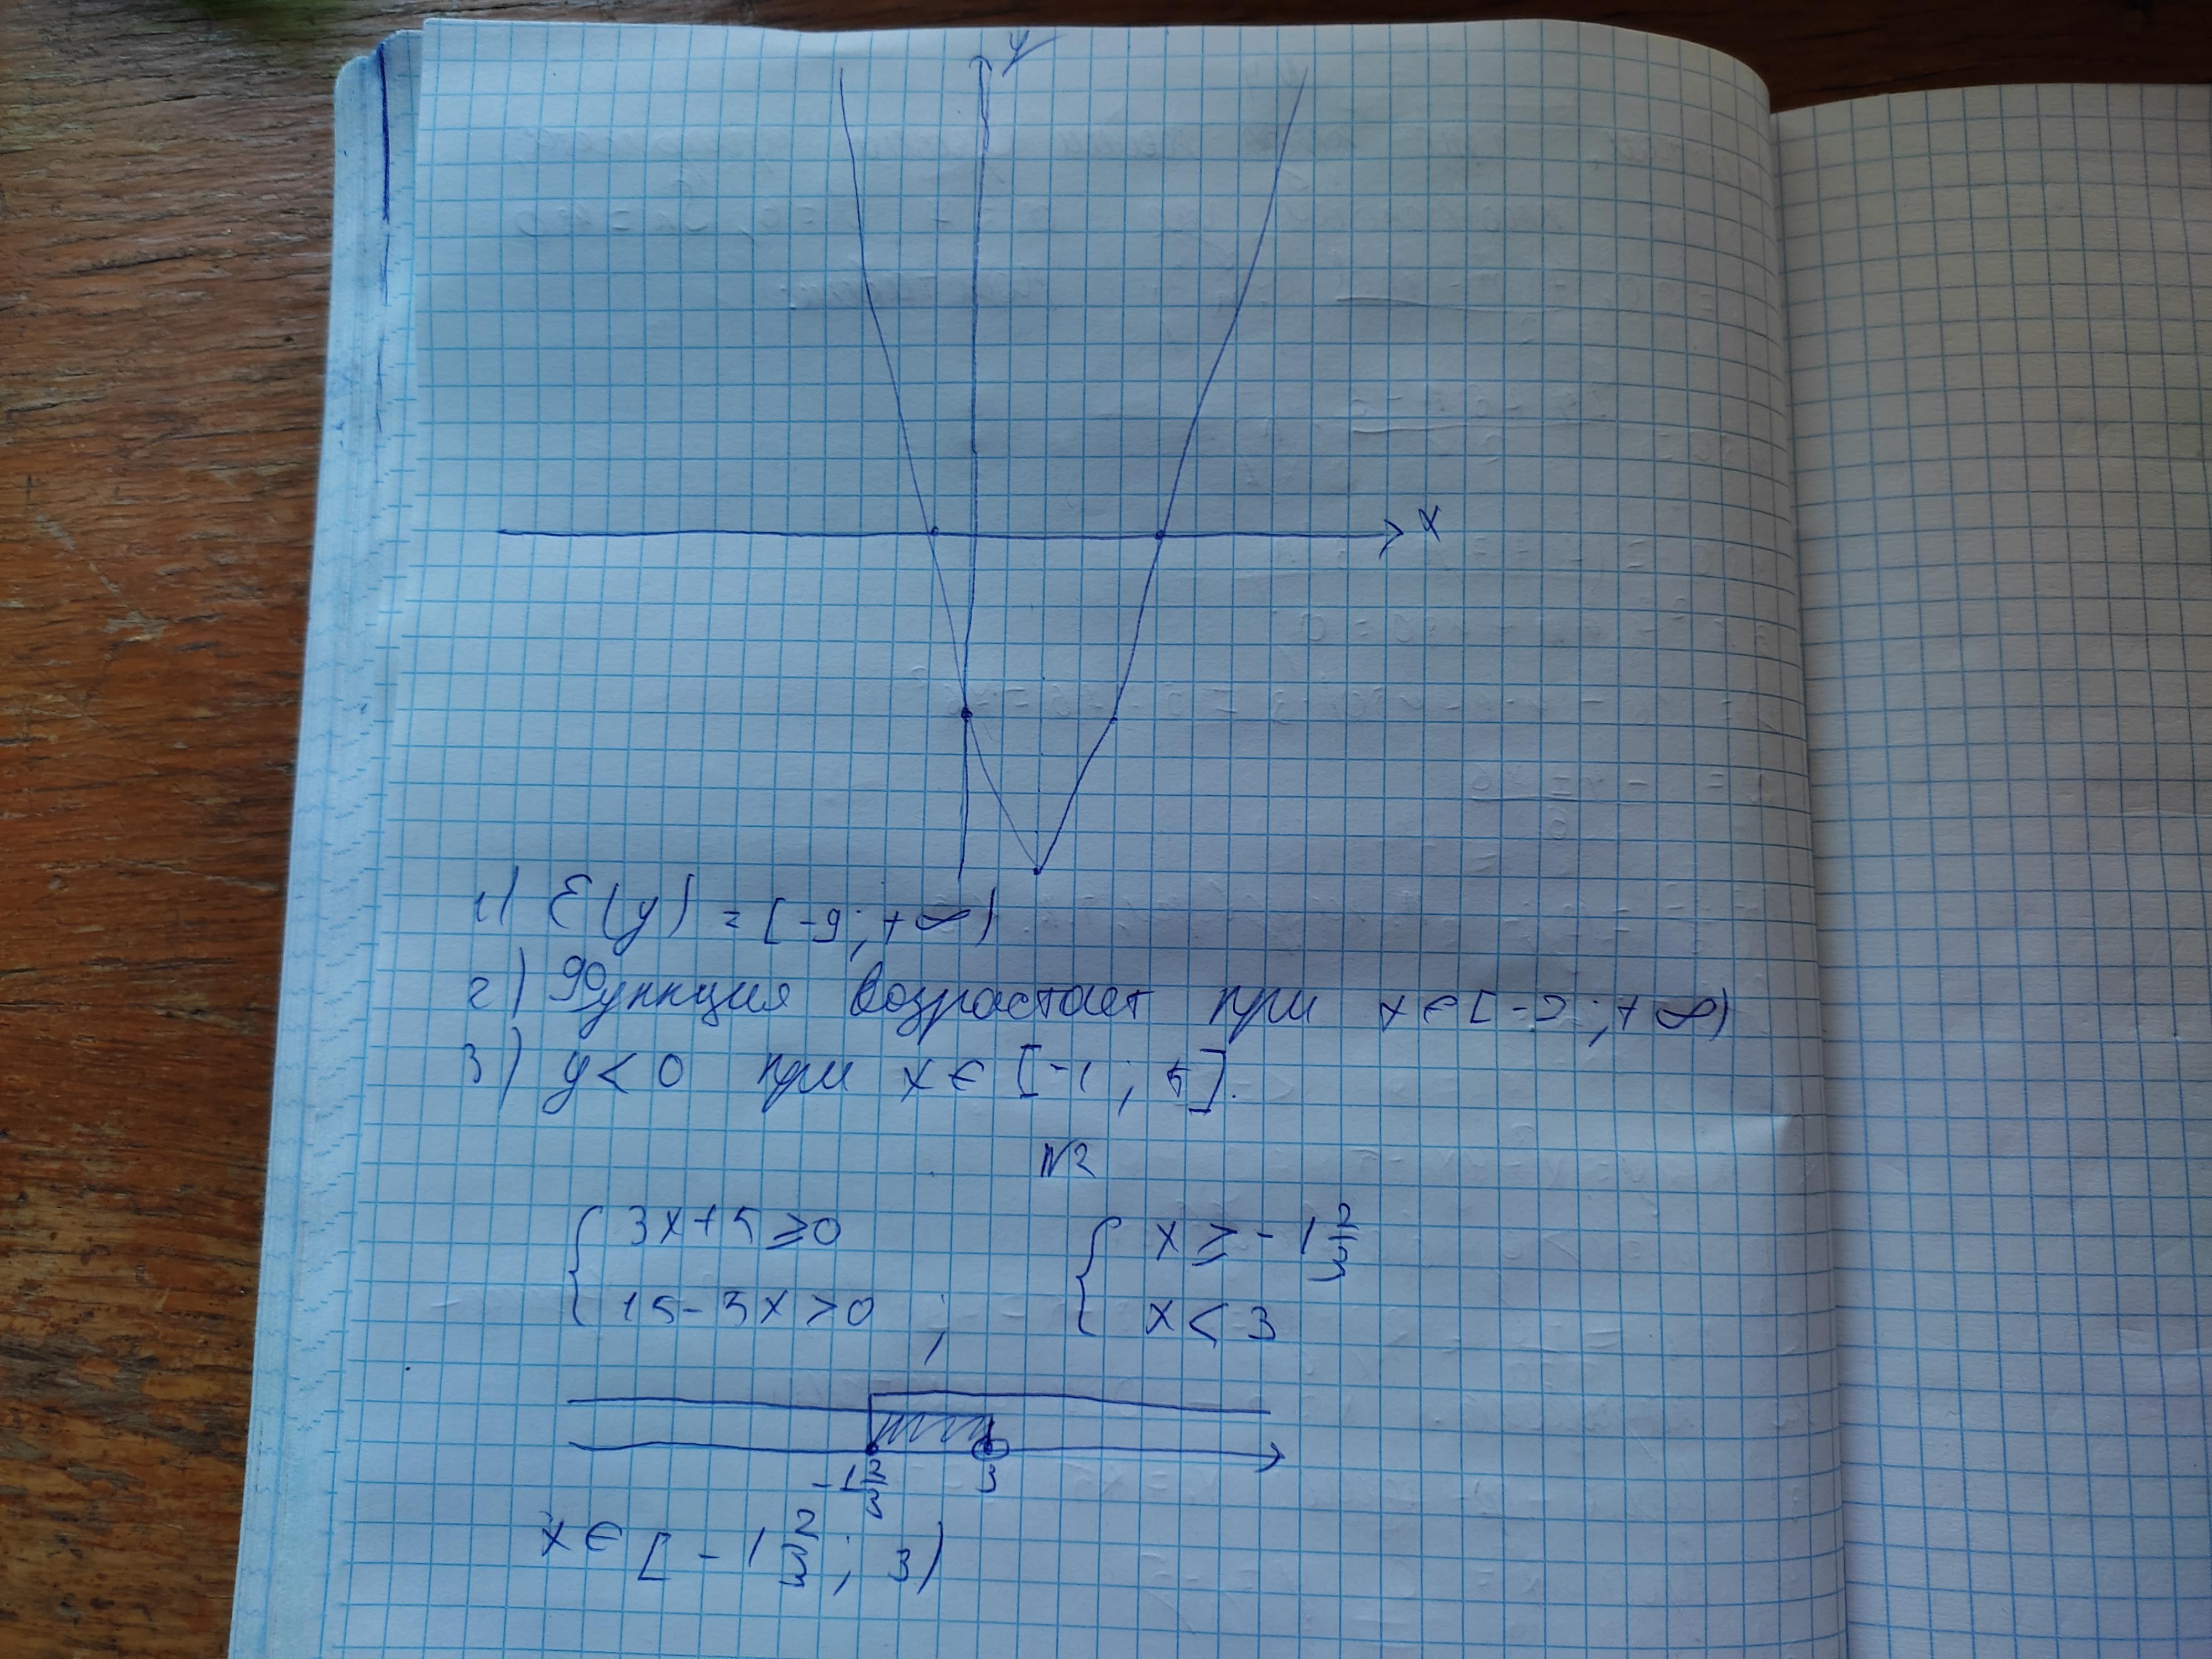 y
x
1) E(y) = [-9; +∞)
2) Функция возрастает при x∈[-2; +∞)
3) y<0 при x∈ [-1; 5].
N2
{ 3x+5⩾0 { x ⩾ -1 2/3
{ 15-3x>0 ; { x < 3
-1 2/3 3
x∈ [-1 2/3; 3)